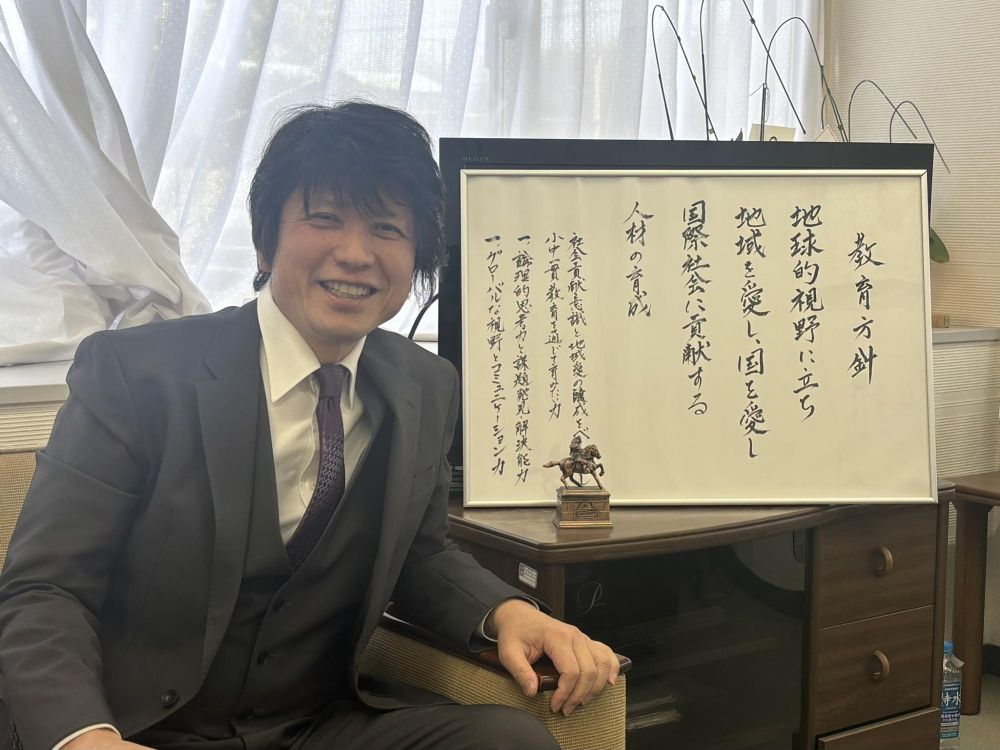 教育方針
地球的視野に立ち
地域を愛し、国を愛し
国際社会に貢献する
人材の育成
社会貢献意識と地域愛の醸成を
小中一貫教育を通じて育みたい力
一、論理的思考力と課題発見・解決能力
一、グローバルな視野とコミュニケーション力